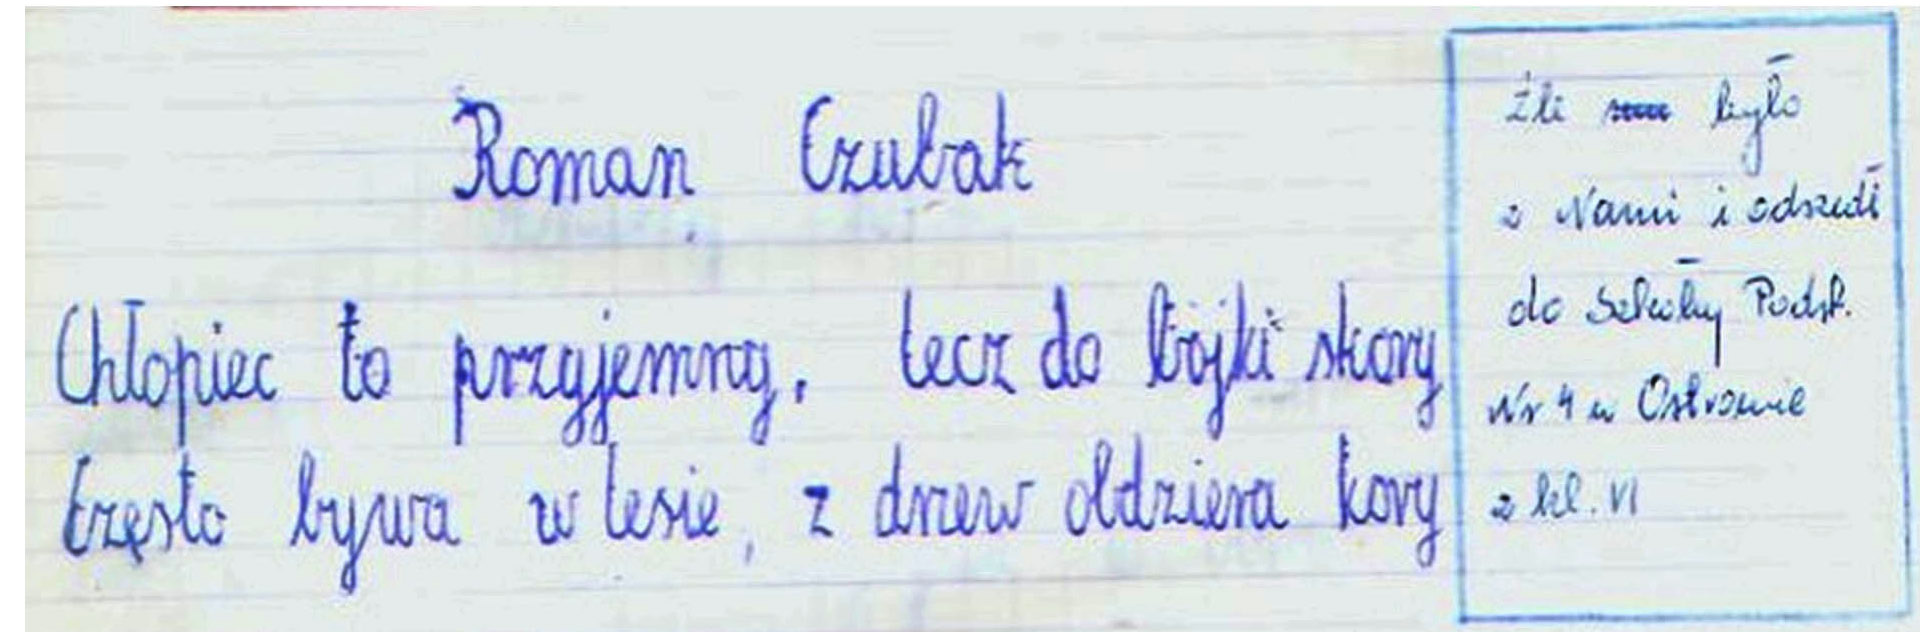 Roman Czubak
Chłopiec to przyjemny, lecz do bójki skory
Często bywa w lesie, z drzew oldziera kory
Źli było
z Nami i odszedł
do Szkoły Podst.
Nr 4 w Ostrowie
z kl. VI